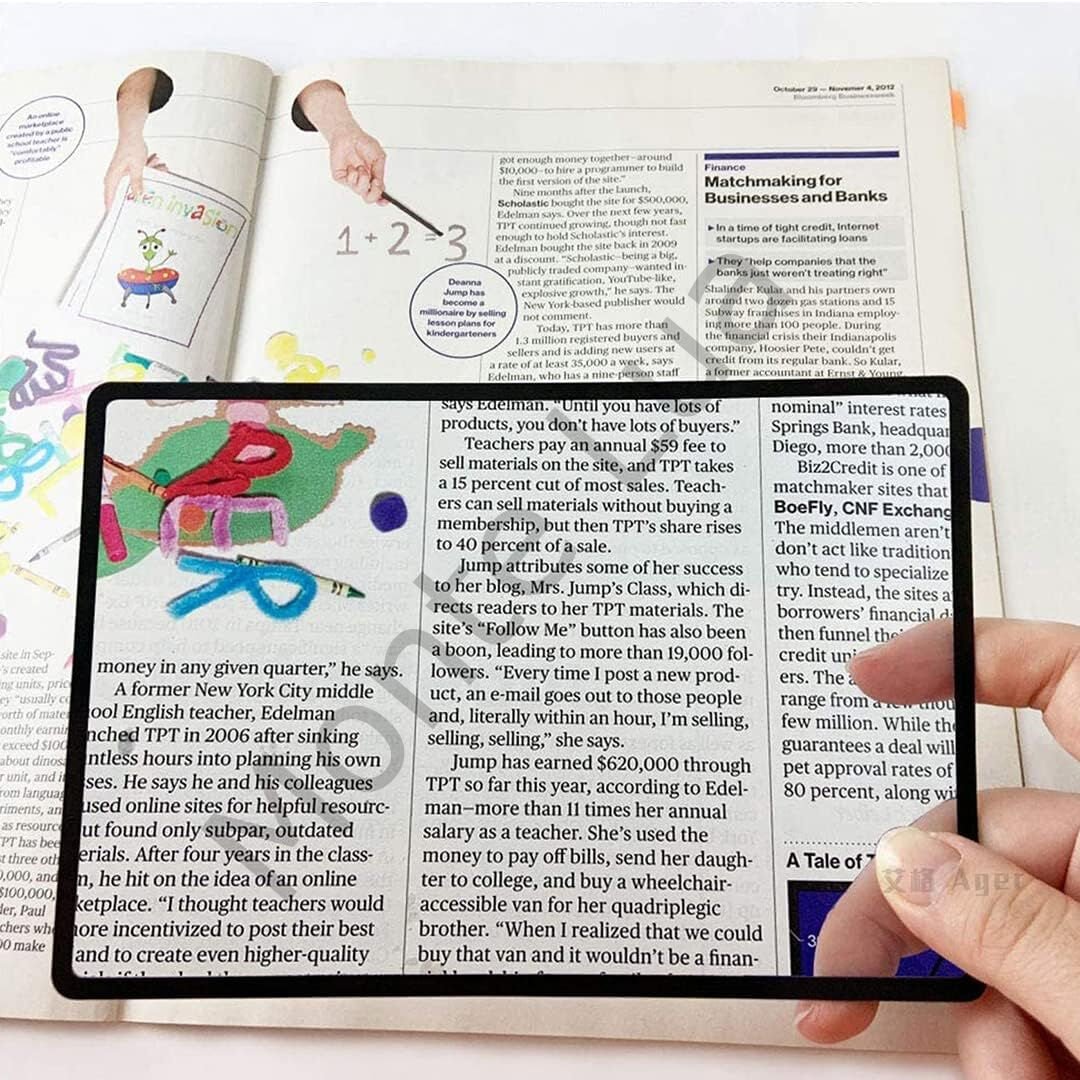 An online
marketplace
created by a public
school teacher is
"comfortably"
profitable
alien invasion
1 + 2 = 3
Deanna
Jump has
become a
millionaire by selling
lesson plans for
kindergarteners
October 29 — Novemer 4, 2012
Bloomberg Businessweek
got enough money together—around
$10,000—to hire a programmer to build
the first version of the site."
Nine months after the launch,
Scholastic bought the site for $500,000,
Edelman says. Over the next few years,
TPT continued growing, though not fast
enough to hold Scholastic's interest.
Edelman bought the site back in 2009
at a discount. "Scholastic—being a big,
publicly traded company—wanted in-
stant gratification, YouTube-like,
explosive growth," he says. The
New York-based publisher would
not comment.
Today, TPT has more than
1.3 million registered buyers and
sellers and is adding new users at
a rate of at least 35,000 a week, says
Edelman, who has a nine-person staff
Finance
Matchmaking for
Businesses and Banks
▸ In a time of tight credit, Internet
startups are facilitating loans
▸ They "help companies that the
banks just weren't treating right"
Shalinder Kular and his partners own
around two dozen gas stations and 15
Subway franchises in Indiana employ-
ing more than 100 people. During
the financial crisis their Indianapolis
company, Hoosier Pete, couldn't get
credit from its regular bank. So Kular,
a former accountant at Ernst & Young,
site in Sep-
's created
ng units, pric
ey "usually co
orth of mater
onthly earnin
exceed $100
about dinos
r unit, and i
rom languag
riments, an
as resource
PT has bee
t three oth
0,000, and
$100,000,
ler, Paul
chers wh
00 make
money in any given quarter," he says.
A former New York City middle
ool English teacher, Edelman
nched TPT in 2006 after sinking
ntless hours into planning his own
ses. He says he and his colleagues
used online sites for helpful resourc-
ut found only subpar, outdated
erials. After four years in the class-
m, he hit on the idea of an online
ketplace. "I thought teachers would
ore incentivized to post their best
and to create even higher-quality
says Edelman. "Until you have lots of
products, you don't have lots of buyers."
Teachers pay an annual $59 fee to
sell materials on the site, and TPT takes
a 15 percent cut of most sales. Teach-
ers can sell materials without buying a
membership, but then TPT's share rises
to 40 percent of a sale.
Jump attributes some of her success
to her blog, Mrs. Jump's Class, which di-
rects readers to her TPT materials. The
site's "Follow Me" button has also been
a boon, leading to more than 19,000 fol-
lowers. "Every time I post a new prod-
uct, an e-mail goes out to those people
and, literally within an hour, I'm selling,
selling, selling," she says.
Jump has earned $620,000 through
TPT so far this year, according to Edel-
man—more than 11 times her annual
salary as a teacher. She's used the
money to pay off bills, send her daugh-
ter to college, and buy a wheelchair-
accessible van for her quadriplegic
brother. "When I realized that we could
buy that van and it wouldn't be a finan-
nominal" interest rates
Springs Bank, headquar
Diego, more than 2,000
Biz2Credit is one of
matchmaker sites that
BoeFly, CNF Exchang
The middlemen aren't
don't act like tradition
who tend to specialize
try. Instead, the sites a
borrowers' financial d
then funnel the
credit uni
ers. The a
range from a few thou
few million. While the
guarantees a deal will
pet approval rates of
80 percent, along wi
A Tale of T
3
艾格 Ager
Monte Lua